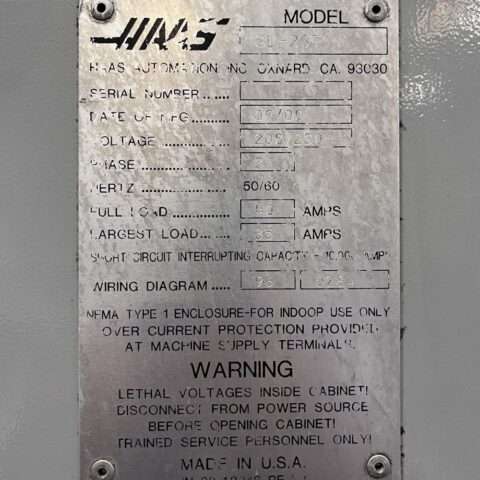 HAAS
MODEL
HAAS AUTOMATION INC. OXNARD, CA. 93030
SERIAL NUMBER......
DATE OF MFG...........
VOLTAGE..............
208/230
PHASE..................
HERTZ................. 50/60
FULL LOAD.............. AMPS
LARGEST LOAD....... AMPS
SHORT CIRCUIT INTERRUPTING CAPACITY - 10,000 AMPS
WIRING DIAGRAM .....
NEMA TYPE 1 ENCLOSURE-FOR INDOOR USE ONLY
OVER CURRENT PROTECTION PROVIDED
AT MACHINE SUPPLY TERMINALS.
WARNING
LETHAL VOLTAGES INSIDE CABINET!
DISCONNECT FROM POWER SOURCE
BEFORE OPENING CABINET!
TRAINED SERVICE PERSONNEL ONLY!
MADE IN U.S.A.